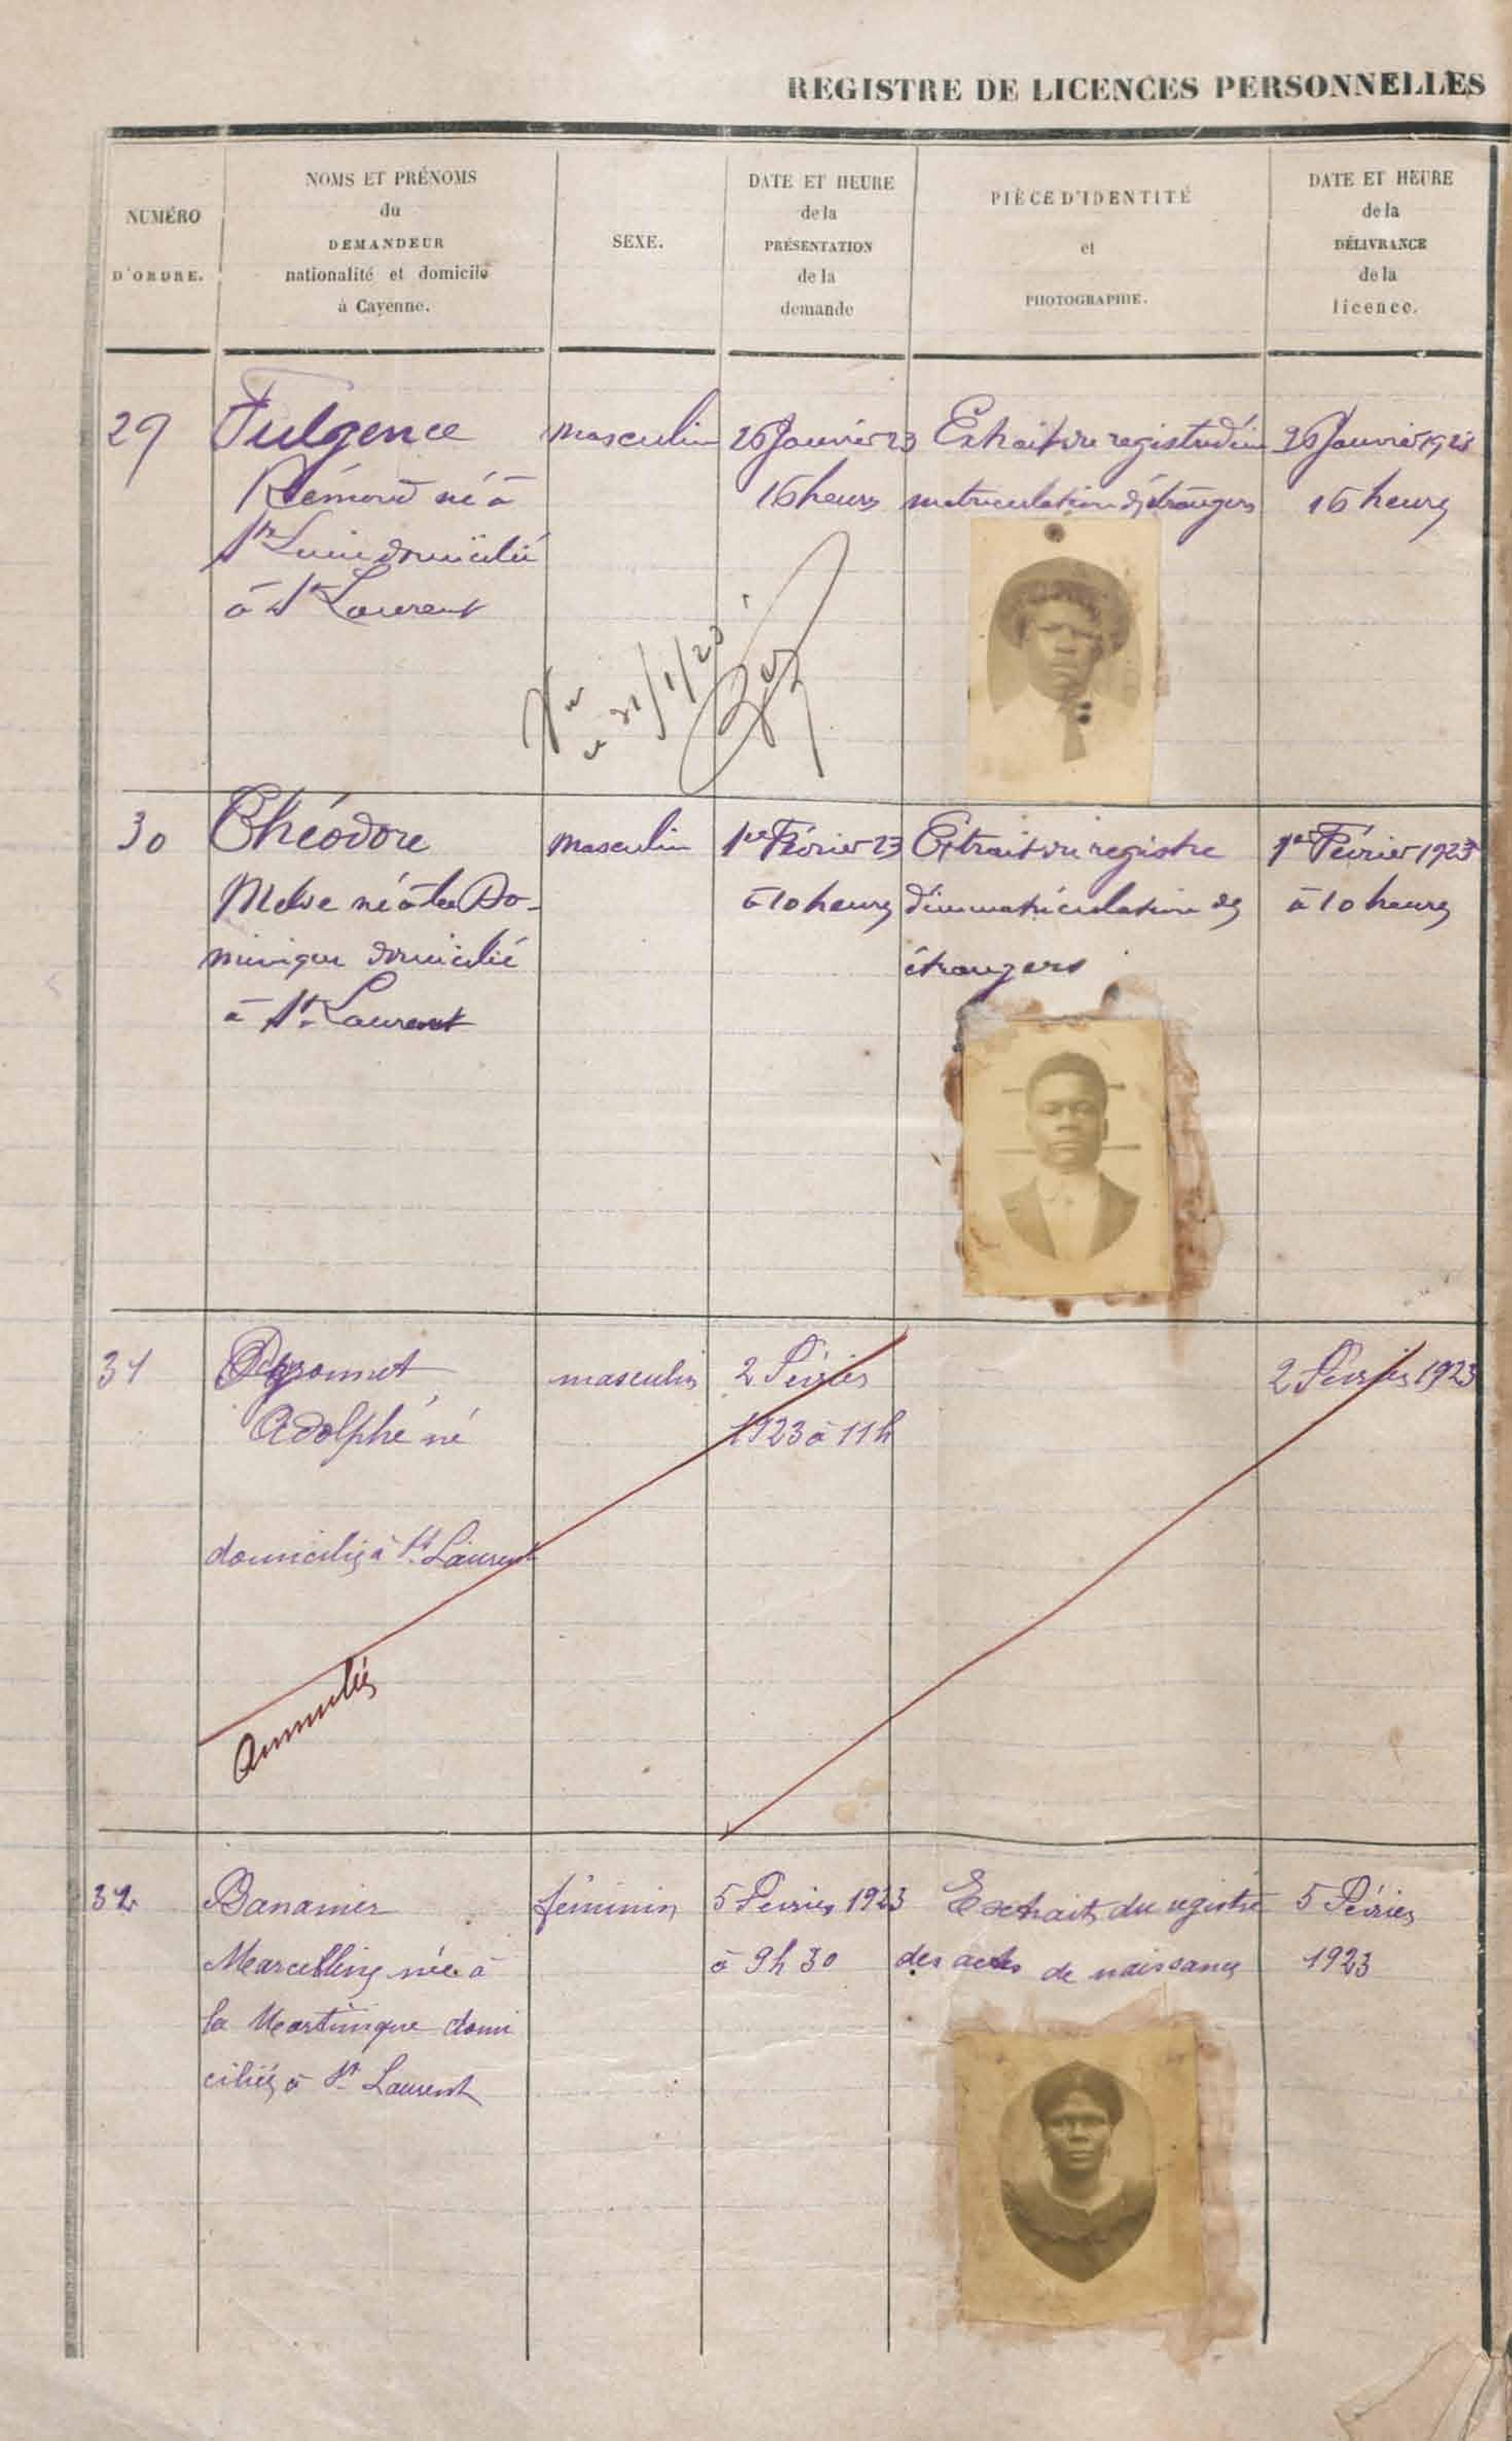 REGISTRE DE LICENCES PERSONNELLES
NUMÉRO
D'ORDRE.
NOMS ET PRÉNOMS
du
DEMANDEUR
nationalité et domicile
à Cayenne.
SEXE.
DATE ET HEURE
de la
PRÉSENTATION
de la
demande
PIÈCE D'IDENTITÉ
et
PHOTOGRAPHIE.
DATE ET HEURE
de la
DÉLIVRANCE
de la
licence.
29
Fulgence
Rémond né à
Ste Lucie domicilié
à St Laurent
masculin
26 Janvier 23
16 heures
Extrait du registre d'im
matriculation des étrangers
26 Janvier 1923
16 heures
Vu
le 31/1/23
30
Théodore
né à la Do-
minique domicilié
à St Laurent
masculin
1er Février 23
à 10 heures
Extrait du registre
d'immatriculation des
étrangers
1er Février 1923
à 10 heures
31
Peyronnet
Adolphe né
domicilié à St Laurent
Annulée
masculin
2 Février
1923 à 11 h
2 Février 1923
32
Banamier
Marcelline née à
la Martinique domi
ciliée à St Laurent
féminin
5 Février 1923
à 9h 30
Extrait du registre
des actes de naissance
5 Février
1923